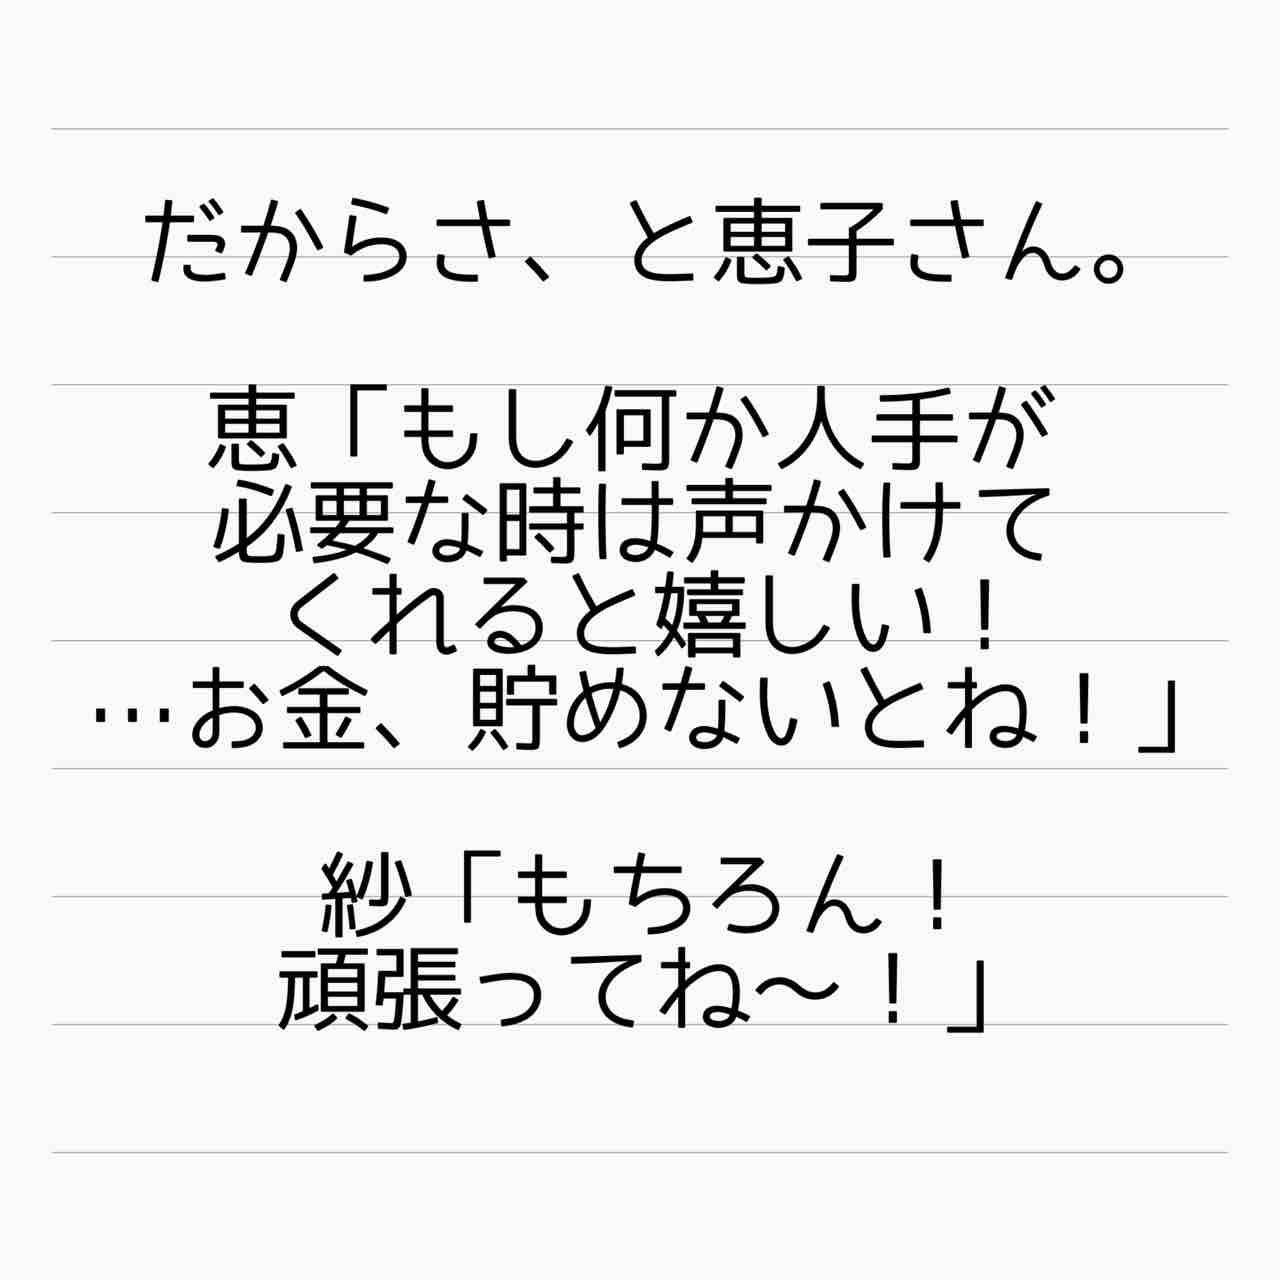 だからさ、と恵子さん。
恵「もし何か人手が
必要な時は声かけて
くれると嬉しい！
…お金、貯めないとね！」
紗「もちろん！
頑張ってね〜！」